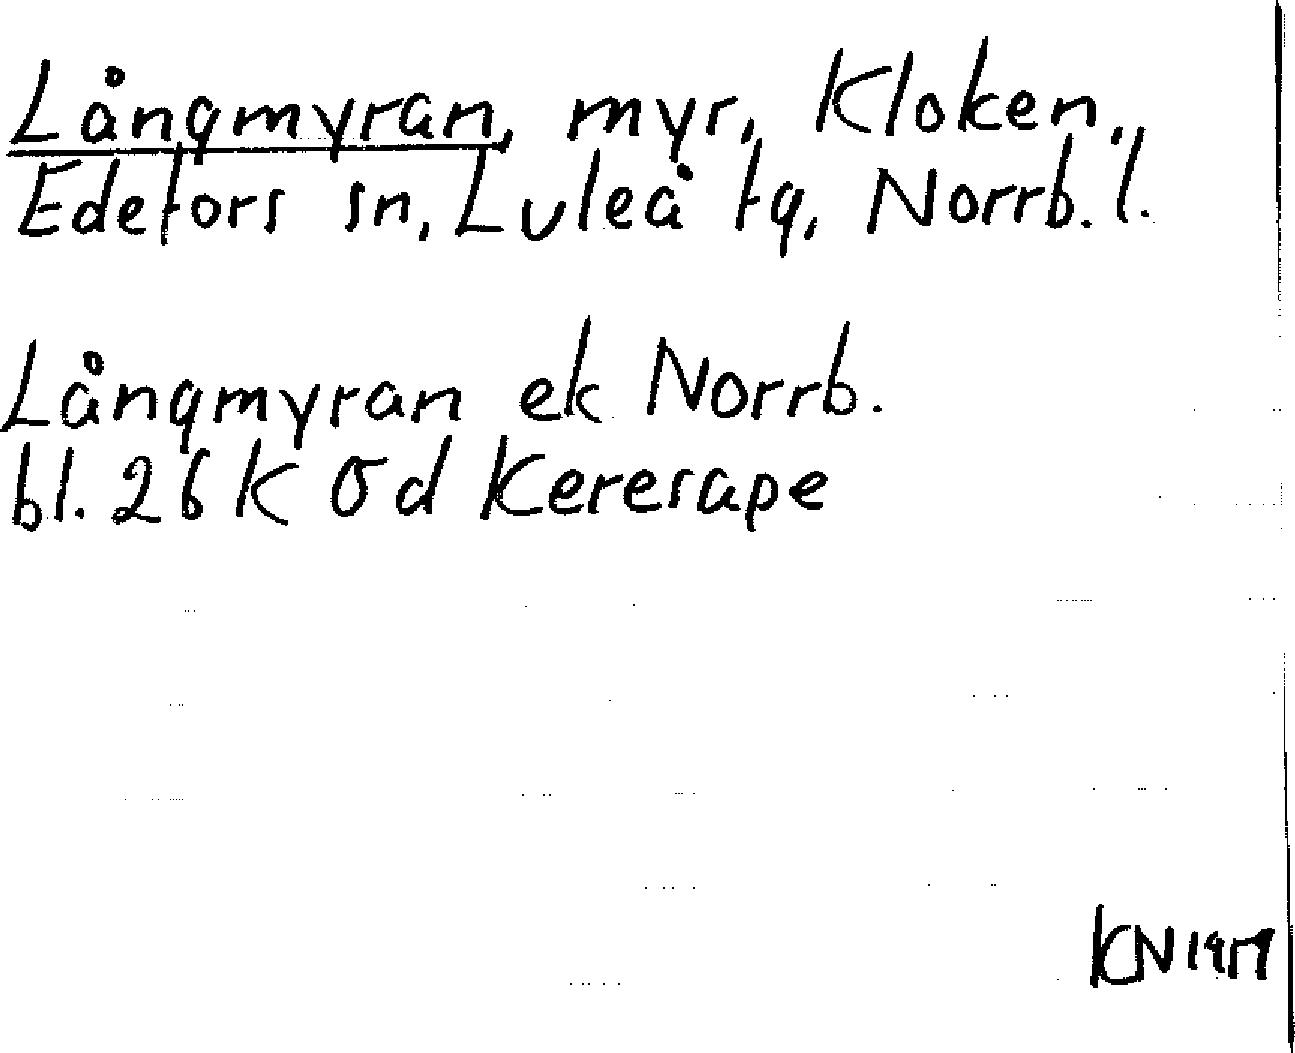 Långmyran, myr, Kloken,
Edefors sn, Luleå tg, Norrb. l.
Långmyran ek Norrb.
bl. 26 K 0d Keresape
KN